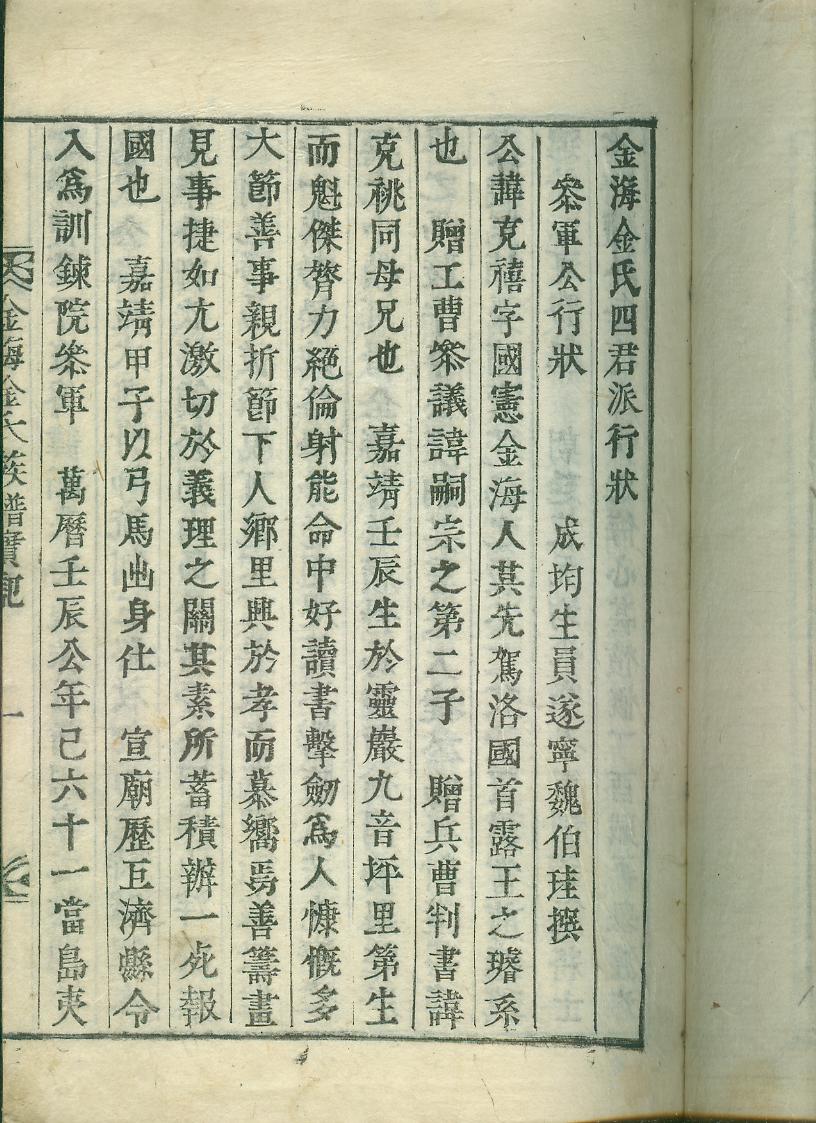 金海金氏四君派行狀
叅軍公行狀 成均生員遂寧魏伯珪撰
公諱克禧字國憲金海人其先駕洛國首露王之璿系
也 贈工曹叅議諱嗣宗之第二子 贈兵曹判書諱
克祧同母兄也 嘉靖壬辰生於靈巖九音坪里第生
而魁傑膂力絕倫射能命中好讀書擊劒爲人慷慨多
大節善事親折節下人鄉里興於孝而慕嚮焉善籌畫
見事捷如亢激切於義理之關其素所蓄積辦一死報
國也 嘉靖甲子以弓馬出身仕 宣廟歷巨濟縣令
入爲訓鍊院叅軍 萬曆壬辰公年已六十一當島夷
金海金氏族譜實記 一